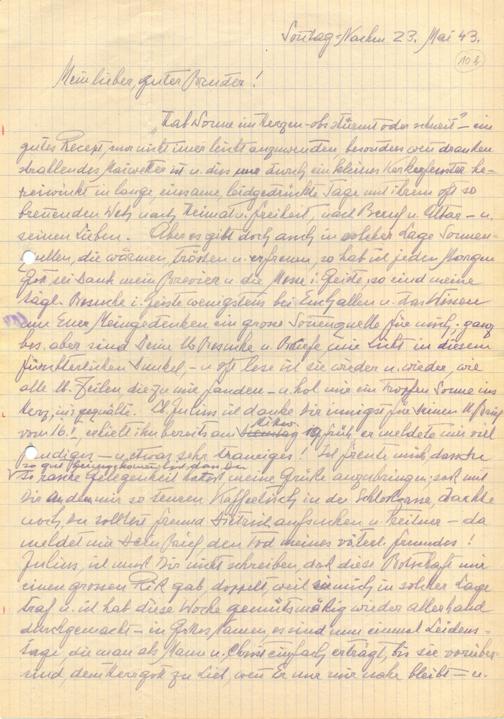 Sonntag-Nachm 23. Mai 43.
10.)
Mein lieber, guter Bruder!
"Hab Sonne im Herzen - obs stürmt oder schneit" - ein
gutes Recept, nur nicht immer leicht anzuwenden, besonders wenn draußen
strahlendes Maiwetter ist u. dies nur durch ein kleines Kerkerfenster he-
reinwinkt in lange, einsame, leidgedrückte Tage mit ihrem oft so
brennenden Weh nach Heimat u. Freiheit, nach Beruf u. Altar - u.
seinen Lieben. Aber es gibt doch auch in solcher Lage Sonnen-
quellen, die wärmen, trösten u. erfreuen, so hab ich jeden Morgen
Gott sei Dank mein Brevier u. die Messe i. Geiste, so sind meine
tägl. Besuche i. Geiste wenigstens bei Euch allen u. das Wissen
um Euer Meingedenken eine grosse Sonnenquelle für mich; ganz
bes. aber sind Deine lb. Besuche u. Briefe wie Licht in diesem
fürchterlichen Dunkel - u. oft lese ich sie wieder u. wieder, wie
alle lb. Zeilen die zu mir fanden - u. hol mir ein Tropfen Sonne ins
Herz, ins gequälte. Lb Julius ich danke Dir innigst für Deinen lb Brief
vom 16.! erhielt ihn bereits am Mittw. früh, er meldete mir viel
Freudiges - u. etwas sehr Trauriges! Es freute mich, dass Du
so gut heimgekommen bist, dass Du
so rasche Gelegenheit hattest meine Grüße anzubringen; sah mit
Dir an dem mir so teuren Kaffeetisch in der Schlosstrasse, dachte
noch, Du solltest Freund Dietrich aufsuchen u. - da
meldet mir Dein Brief den Tod meines väterl. Freundes!
Julius, ich muss Dir nicht schreiben, daß diese Botschaft mir
einen grossen Riß gab, doppelt, weil sie mich in solcher Lage
traf u. ich hab diese Woche gemütsmäßig wieder allerhand
durchgemacht - in Gottes Namen, es sind nun einmal Leidens-
tage, die man als Mann u. Christ einfach erträgt, bis sie vorüber
sind, dem Herrgott zu Lieb, wenn Er nur mir nahe bleibt - u.